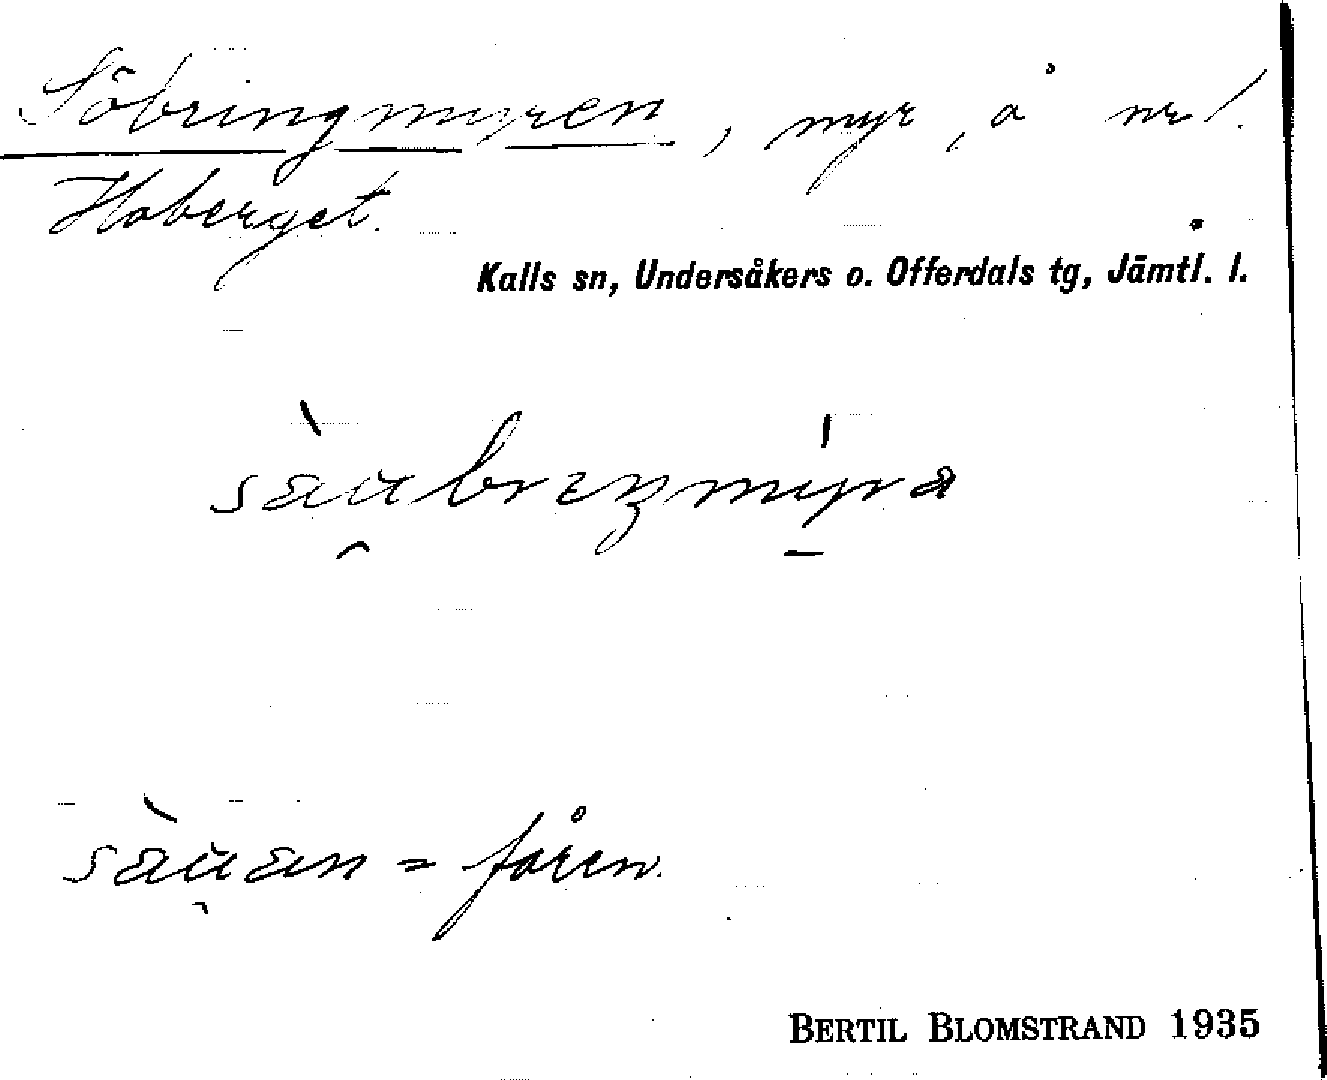 Söbringmyren, myr, å nr 1.
Hoberget.
Kalls sn, Undersåkers o. Offerdals tg, Jämtl. l.
såuan = fåren.
BERTIL BLOMSTRAND 1935